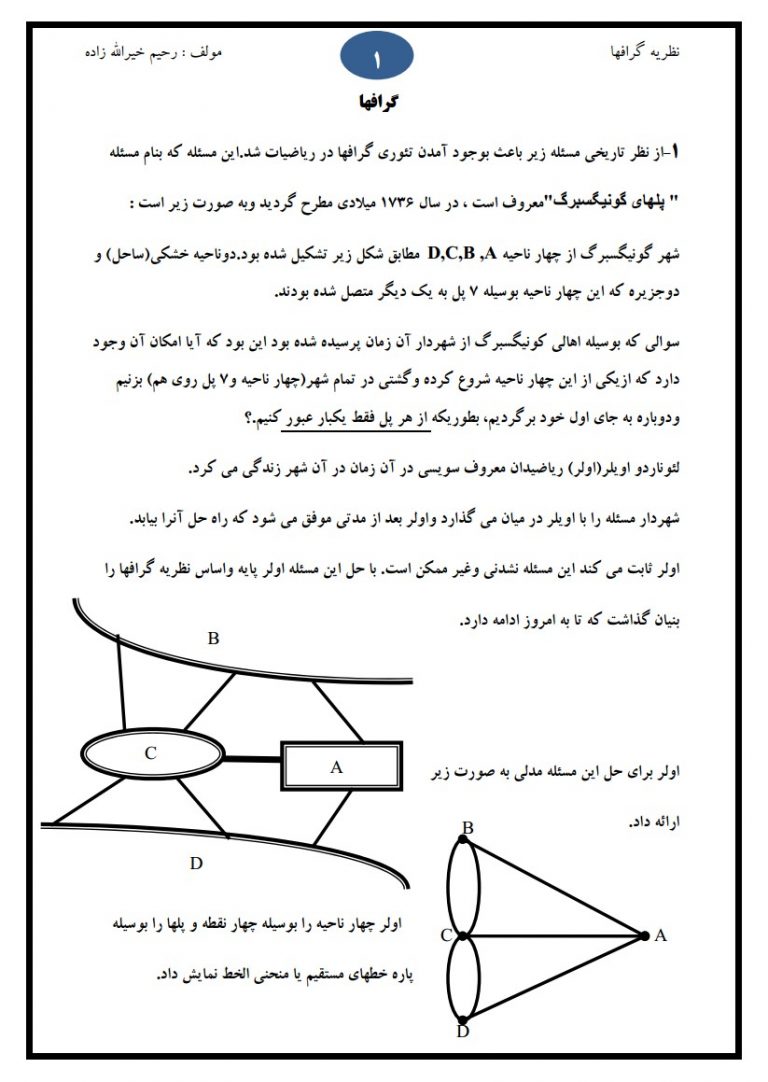 نظریه گرافها
۱
مولف : رحیم خیرالله زاده
گرافها
۱-از نظر تاریخی مسئله زیر باعث بوجود آمدن تئوری گرافها در ریاضیات شد.این مسئله که بنام مسئله
" پلهای گونیگسبرگ"معروف است ، در سال ۱۷۳۶ میلادی مطرح گردید وبه صورت زیر است :
شهر گونیگسبرگ از چهار ناحیه D,C,B ,A مطابق شکل زیر تشکیل شده بود.دوناحیه خشکی(ساحل) و
دوجزیره که این چهار ناحیه بوسیله ۷ پل به یک دیگر متصل شده بودند.
سوالی که بوسیله اهالی کونیگسبرگ از شهردار آن زمان پرسیده شده بود این بود که آیا امکان آن وجود
دارد که ازیکی از این چهار ناحیه شروع کرده وگشتی در تمام شهر(چهار ناحیه و۷ پل روی هم) بزنیم
ودوباره به جای اول خود برگردیم، بطوریکه از هر پل فقط یکبار عبور کنیم.؟
لئوناردو اویلر(اولر) ریاضیدان معروف سویسی در آن زمان در آن شهر زندگی می کرد.
شهردار مسئله را با اویلر در میان می گذارد واولر بعد از مدتی موفق می شود که راه حل آنرا بیابد.
اولر ثابت می کند این مسئله نشدنی وغیر ممکن است. با حل این مسئله اولر پایه واساس نظریه گرافها را
بنیان گذاشت که تا به امروز ادامه دارد.
B
C
A
D
اولر برای حل این مسئله مدلی به صورت زیر
ارائه داد.
B
C
A
D
اولر چهار ناحیه را بوسیله چهار نقطه و پلها را بوسیله
پاره خطهای مستقیم یا منحنی الخط نمایش داد.